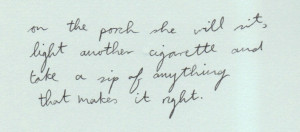 on the porch she will sit,
light another cigarette and
take a sip of anything
that makes it right.